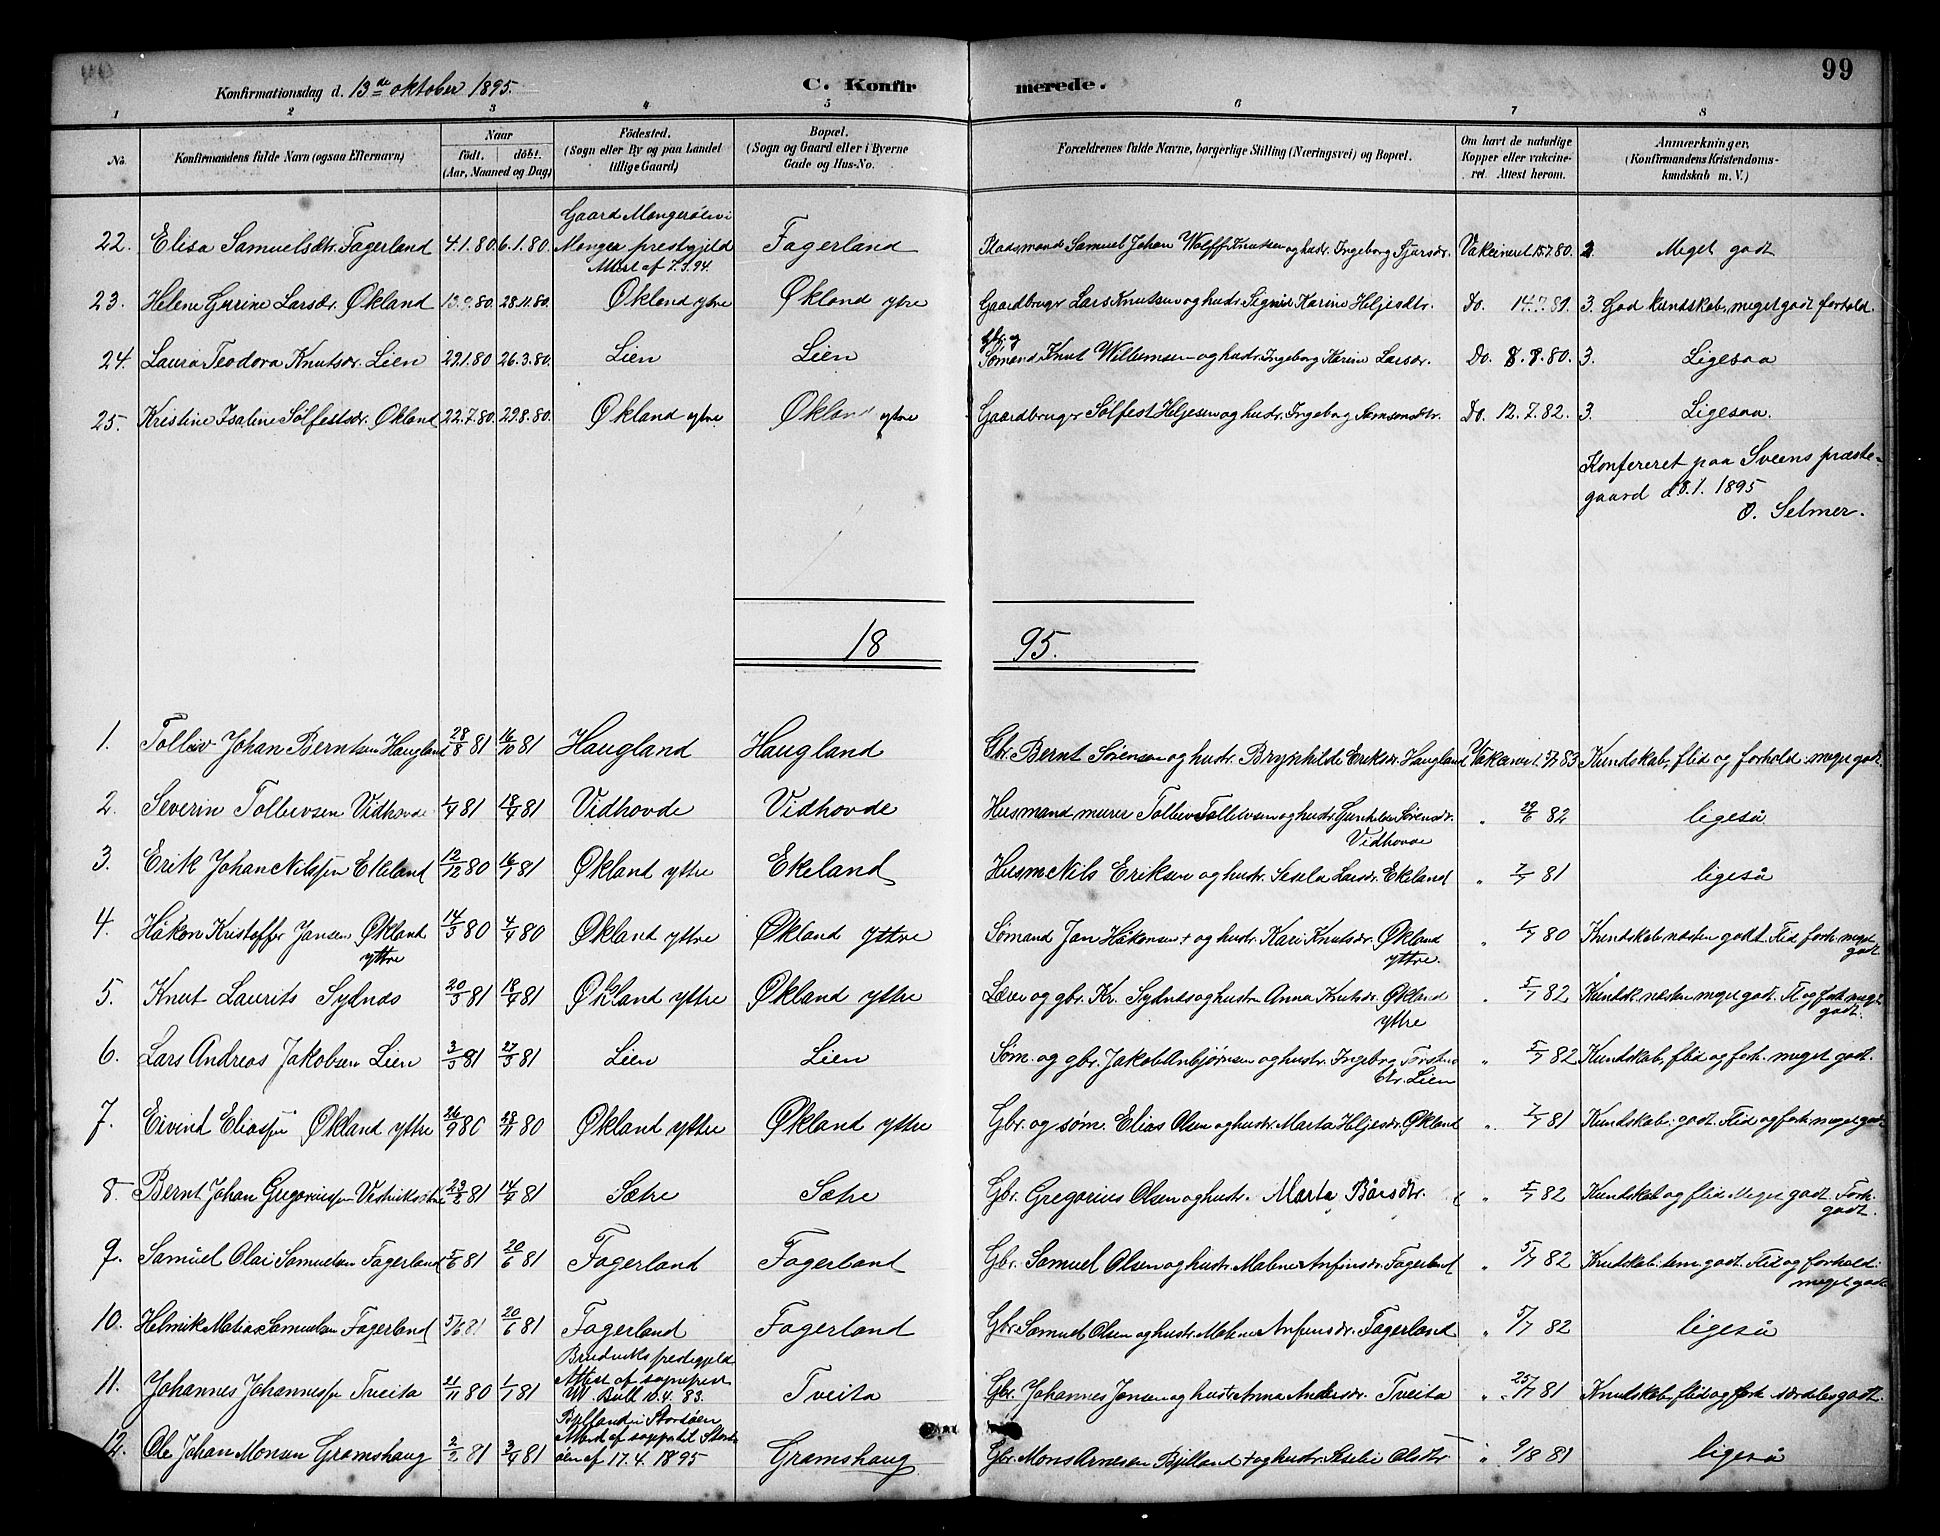 99
Konfirmationsdag d. 13de oktober 1895. C. Konfirmerede.
1 2 3 4 5 6 7 8
No. Konfirmandens fulde Navn (ogsaa Efternavn) Naar födt. döbt. (Aar, Maaned og Dag) Födested. (Sogn eller By og paa Landet tillige Gaard) Bopæl. (Sogn og Gaard eller i Byerne Gade og Hus-No. Forældrenes fulde Navne, borgerlige Stilling (Næringsvei) og Bopæl. Om havt de naturlige Kopper eller vakcineret. Attest herom. Anmærkninger, (Konfirmandens Kristendomskundskab m. V.)
22. Elisa Samuelsdtr. Fagerland 4.1.80. 6.1.80. Gaard Mangerøen i Manger prestegjeld Attest af 7.3.94. Fagerland Pladsmand Samuel Johan Wolff Knutsen og hustr. Ingeborg Vakcineret 15.7.80. Meget godt
23. Helene Gurine Larsdr. Økland 13.9.80 28.11.80. Økland ytre Økland ytre Gaardbrugr Lars Knutsen og hustr. Sigrid Karine Heljesdtr. Do. 14.7.81. 3. God kundskab, meget godt forhold.
24. Laura Teodora Knutsdr. Lien 29.1.80 26.3.80. Lien Lien Sømand Knut Willumsen og hustr. Ingeborg Karine Larsdr. Do. 8.8.80. 3. Ligesaa
25. Kristine Isaline Sølfestsdr. Økland 22.7.80. 29.8.80. Økland ytre Økland ytre Gaardbrugr Sølfest Heljesen og hustr. Ingeborg Samsonsdtr. Do. 12.7.82. 3. Ligesaa.
Konfereret paa Sveens præstegaard d 8.1. 1895
O. Selmer.
18 95.
1. Tolleiv Johan Berntsen Haugland 28/8 81 16/10 81 Haugland Haugland Gbr. Bernt Sørensen og hustr. Brynhilde Eriksdr. Haugland Vakcineret 83 Kundskab, flid og forhold meget godt.
2. Severin Tolleivsen Vidhovde 1/4 81 18/4 81 Vidhovde Vidhovde Husmand murer Tolleiv Tolleivsen og hustr. Gunhilde Sørensdr. Vidhovde " 29/6 82 ligeså
3. Erik Johan Nilssen Ekeland 12/12 80 16/1 81 Økland ytre Ekeland Husm Nils Eriksen og hustr. Sesela Larsdr. Ekeland " 7/7 81 ligeså
4. Håkon Kristoffer Jansen Økland yttre 14/3 80 4/4 80 Økland yttre Økland yttre Sømand Jan Håkonsen + og hustr. Kari Knutsdr. Økland yttre. " 80 Kundskab næsten godt. Flid forh. meget godt
5. Knut Laurits Sydnes 20/3 81 18/4 81 Økland yttre Økland yttre Lærer og gbr. Kr. Sydnes og hustru Anna Knutsdr. Økland yttre " 5/7 82 Kundsk. næsten meget godt. Fl og forh. meget godt.
6. Lars Andreas Jakobsen Lien 3/3 81 27/3 81 Lien Lien Søm. og gbr. Jakob Anbjørnsen og hustr. Ingeborg Torstensdtr. Lien " 5/7 82 Kundskab, flid og forh. meget godt.
7. Eivind Eliassen Økland yttre 26/9 80 28/11 80 Økland yttre Økland yttre Gbr. og søm. Elias Olsen og hustr. Marta Heljesdr. Økland " 7/7 81 Kundskab: godt. Flid og forh. meget godt
8. Bernt Johan Gregoriussen 23/2 81 14/4 81 Sætre Sætre Gbr. Gregorius Olsen og hustr. Marta Bårsdtr. " 5/7 82 Kundskab og flid Meget godt. Forh. godt.
9. Samuel Olai Samuelsen Fagerland 5/6 81 20/6 81 Fagerland Fagerland Gbr. Samuel Olsen og hustr. Malene Anfinsdr. Fagerland " 5/7 82 Kundskab: tem. godt. Flid og forhold: meget godt
10. Helmik Matias Samuelsen Fagerland 5/6 81 20/6 81 Fagerland Fagerland Gbr. Samuel Olsen og hustr. Malene Anfinsdr. Fagerland " 5/7 82 ligeså
11. Johannes Johannessen Tveita 21/11 80 1/1 81 prestegjeld Attest af sogneprest Bull 10.4. 83. Tveita Gbr. Johannes Jensen og hustr. Anna Andersdr. Tveita " 25/7 81 Kundskab, flid og forh. særdeles godt.
12. Ole Johan Monsen Gramshaug 2/2 81 3/4 81 Bjelland i Storøen Attest af 17.4.1895 Gramshaug Gbr. Mons Arnesen Bjelland + og hustr. Sesele Olsdtr " 9/8 81 ligeså